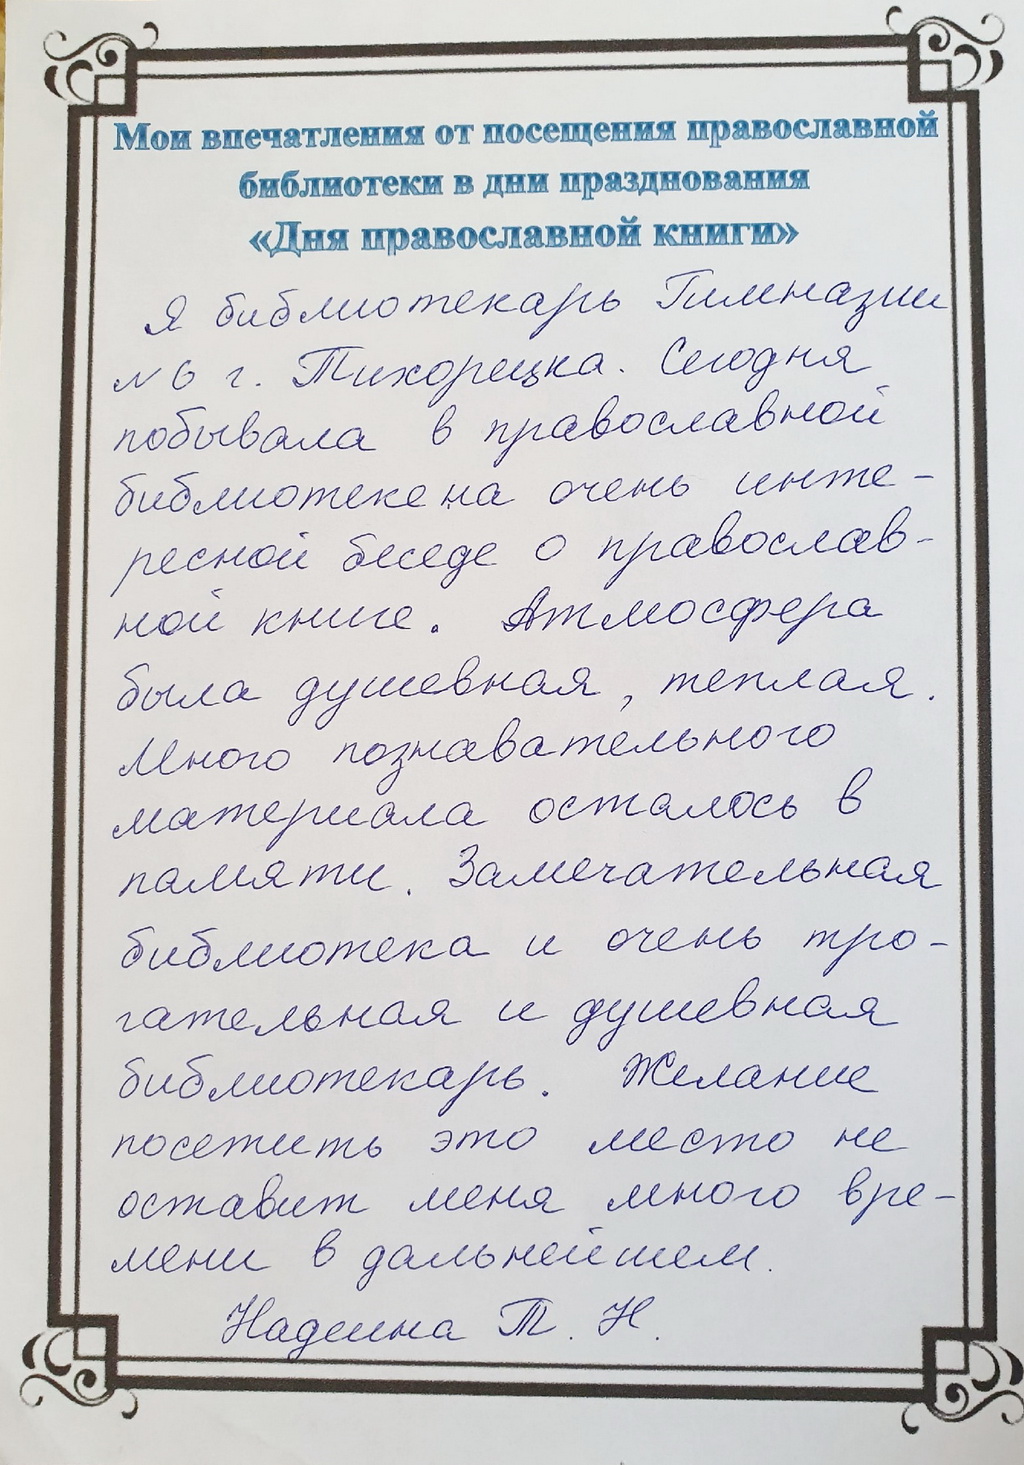 Мои впечатления от посещения православной
библиотеки в дни празднования
«Дня православной книги»
Я библиотекарь Гимназии
№ 6 г. Тихорецка. Сегодня
побывала в православной
библиотеке на очень инте-
ресной беседе о православ-
ной книге. Атмосфера
была душевная, теплая.
Много познавательного
материала осталось в
памяти. Замечательная
библиотека и очень тро-
гательная и душевная
библиотекарь. Желание
посетить это место не
оставит меня много вре-
мени в дальнейшем.
Надеина Т. Н.